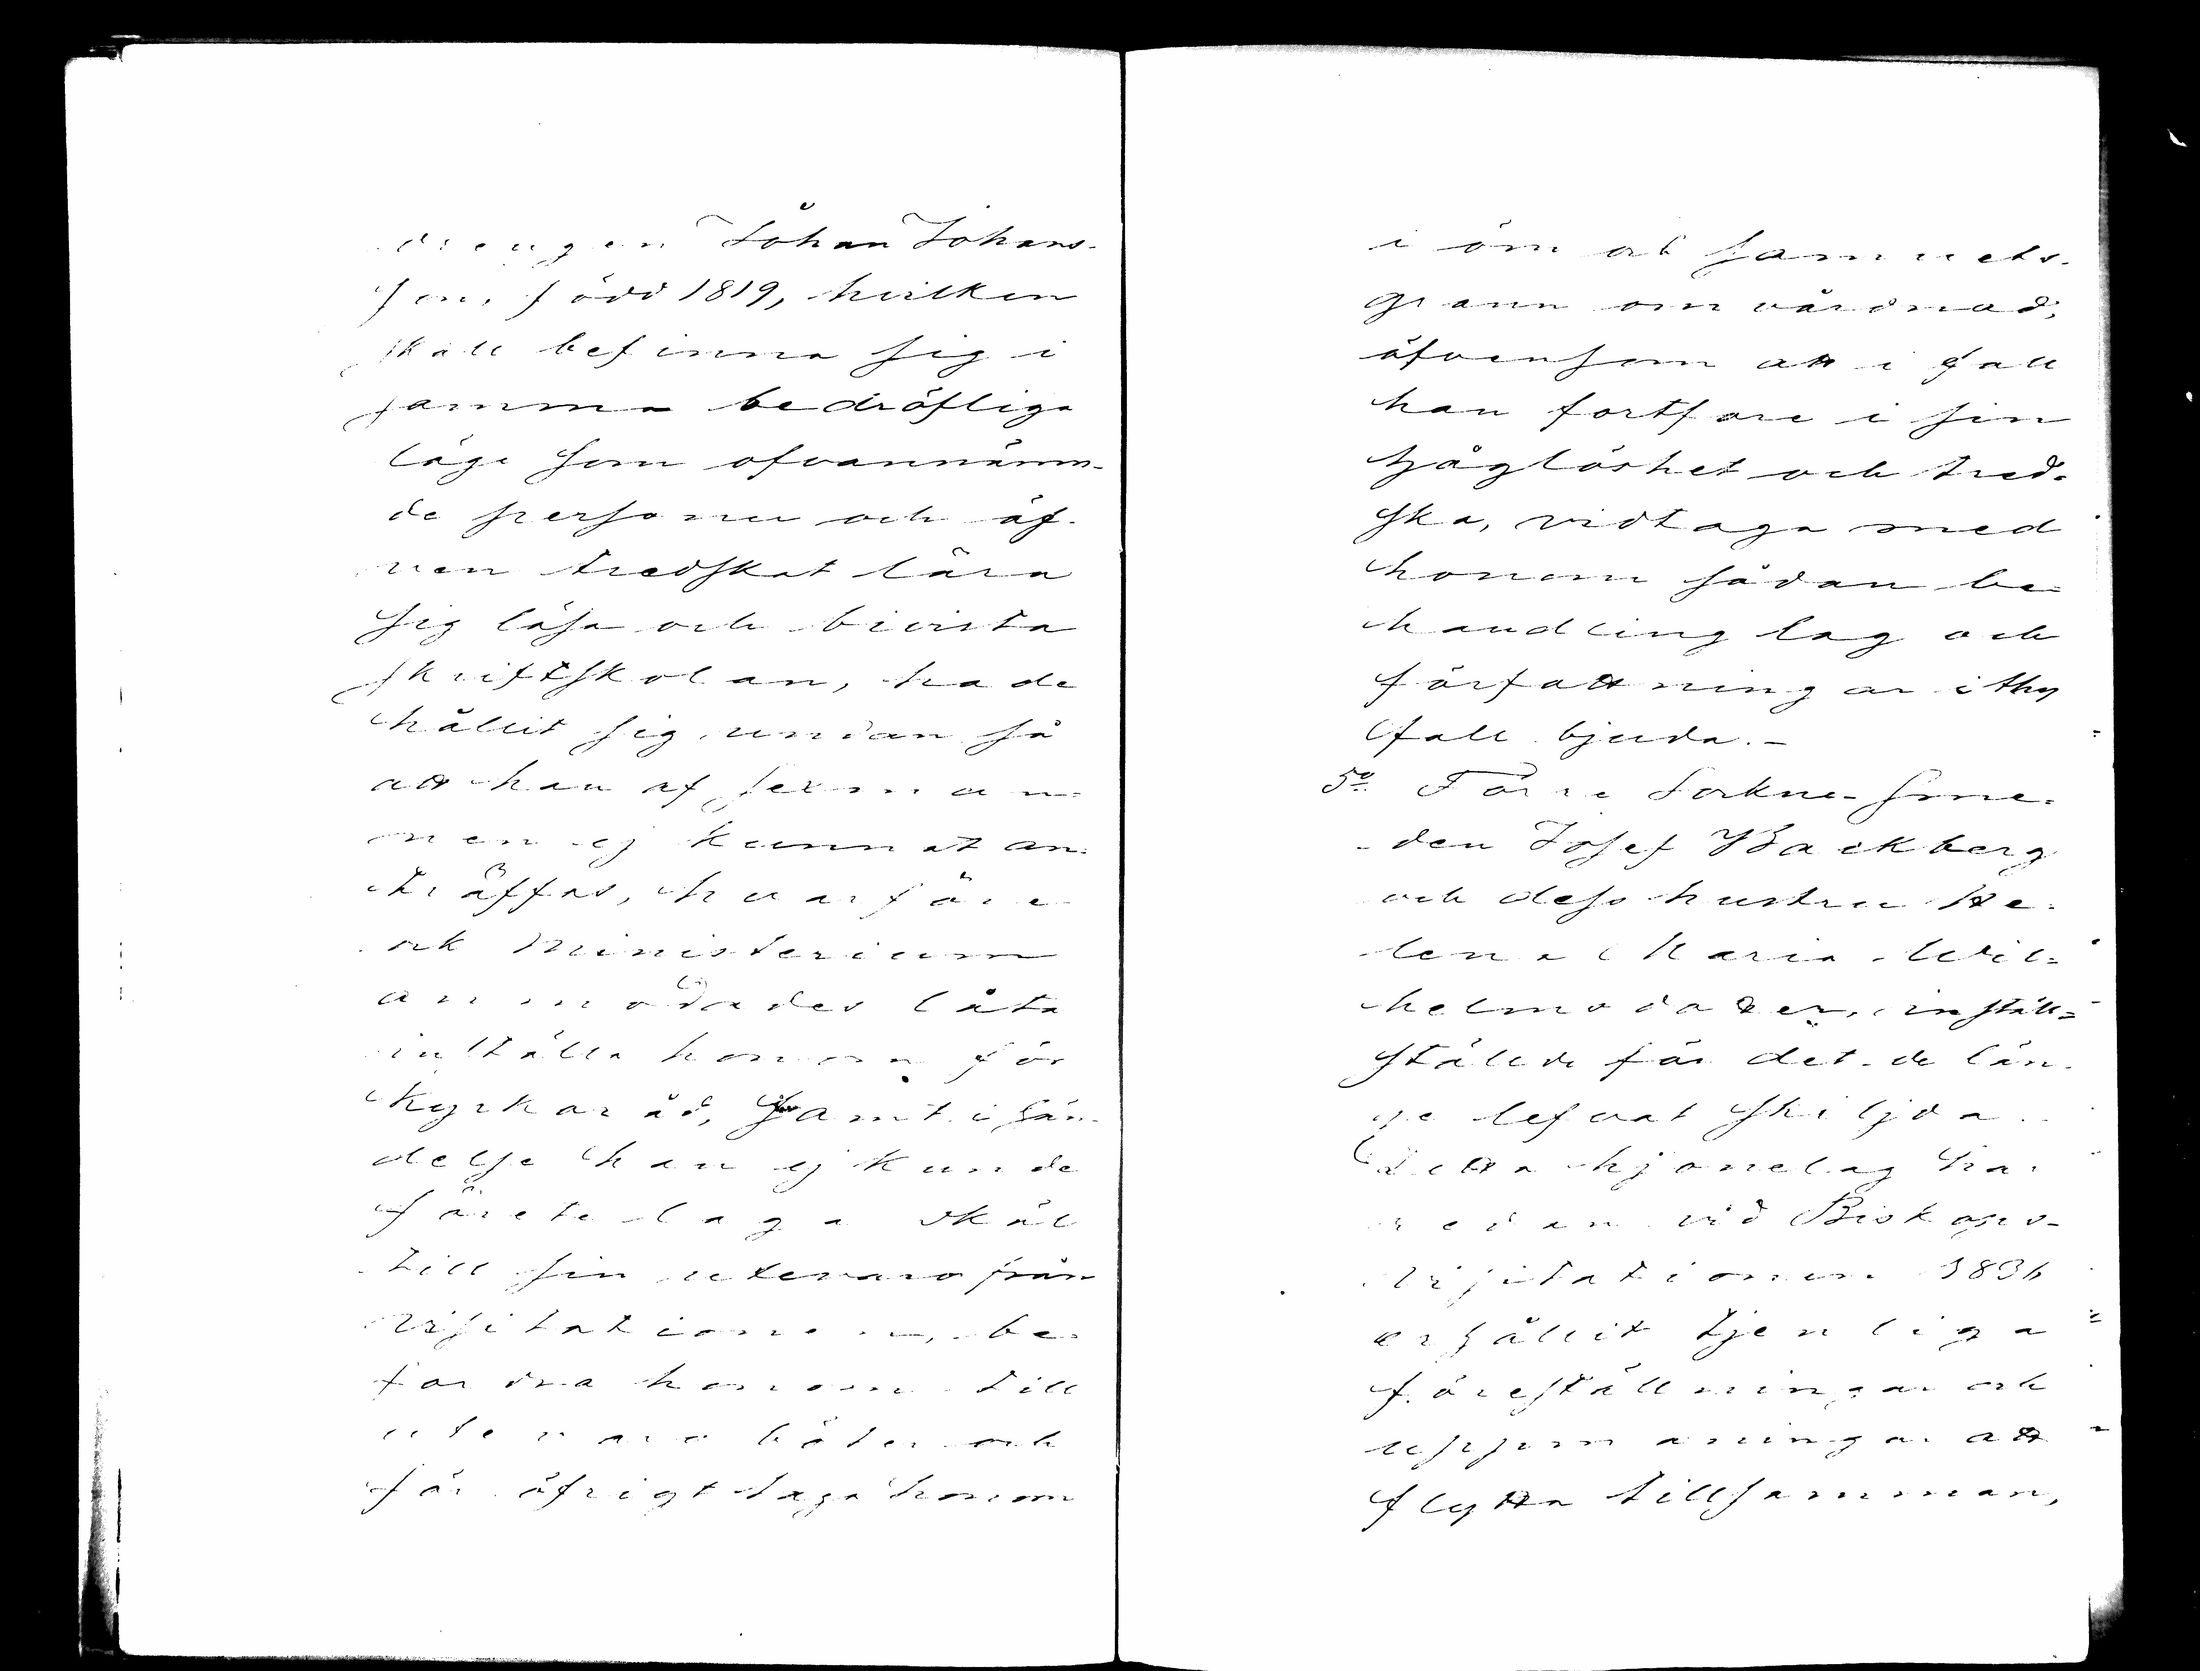 drengen Johan Johans-
son, född 1819, hvilken
skall befinna sig i
samma bedröfliga
läge som ofvannämn-
de person och äf-
ven tredskat lära
sig läsa och bivista
skriftskolan, hade
hållit sig undan så
att han af sexman-
nen ej kunnat an-
träffas, hvarföre
ock Ministerium
anmodades låta
inställa honom för
Kyrkoråd, samt i hän-
delse han ej kunde
förete laga skäl
till sin utevaro från
visitationen, be-
fordra honom till
utevaro böter och
för öfrigt taga honom
i öm och samvets-
grann om vårdnad,
äfvensom att i fall
han fortfore i sin
håglöshet och tred-
ska, vidtaga med
honom sådan be-
handling lag och
författningar i thy
fall bjuda.-
5o Förre Sockne-Sme-
den Josef Backberg
och dess hustru He-
lena Maria Wil-
helmsdotter, inställ-
stälde för det de län-
ge lefvat skiljda.
Detta hjonelag ha-
redan vid Biskops-
visitationen 1836
erhållit tjenliga
föreställningar och
uppmaningar att
flytta tillsamman,